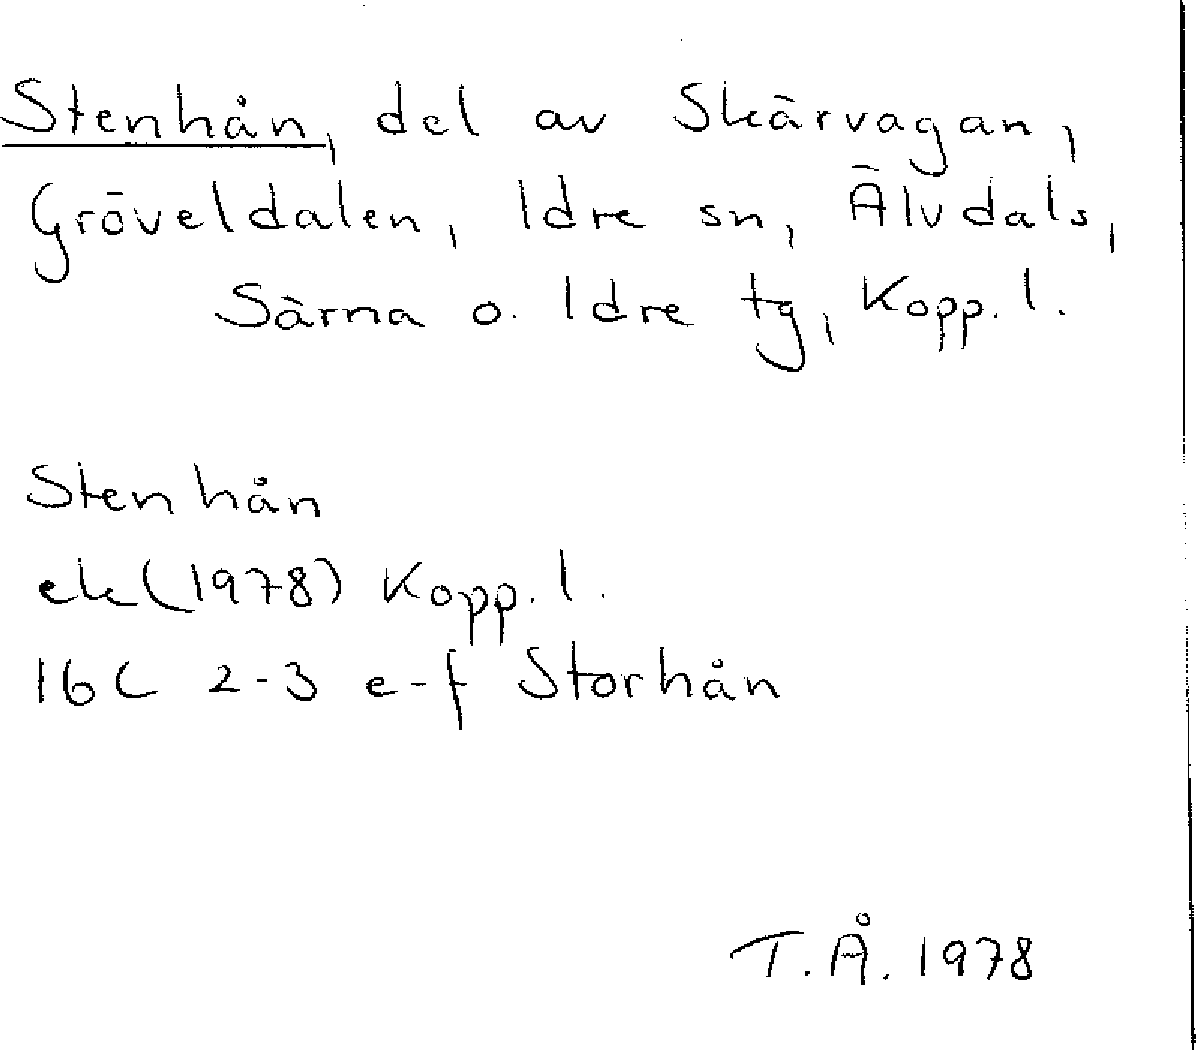 Stenhån, del av Skärvagan,
Gröveldalen, Idre sn, Älvdals,
Särna o. Idre tg, Kopp. l.
Stenhån
ek (1978) Kopp. l.
16C 2-3 e-f Storhån
T.Å. 1978